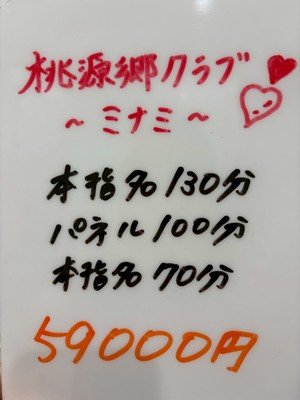 桃源郷クラブ
~ミナミ~
本指名130分
パネル100分
本指名70分
59000円